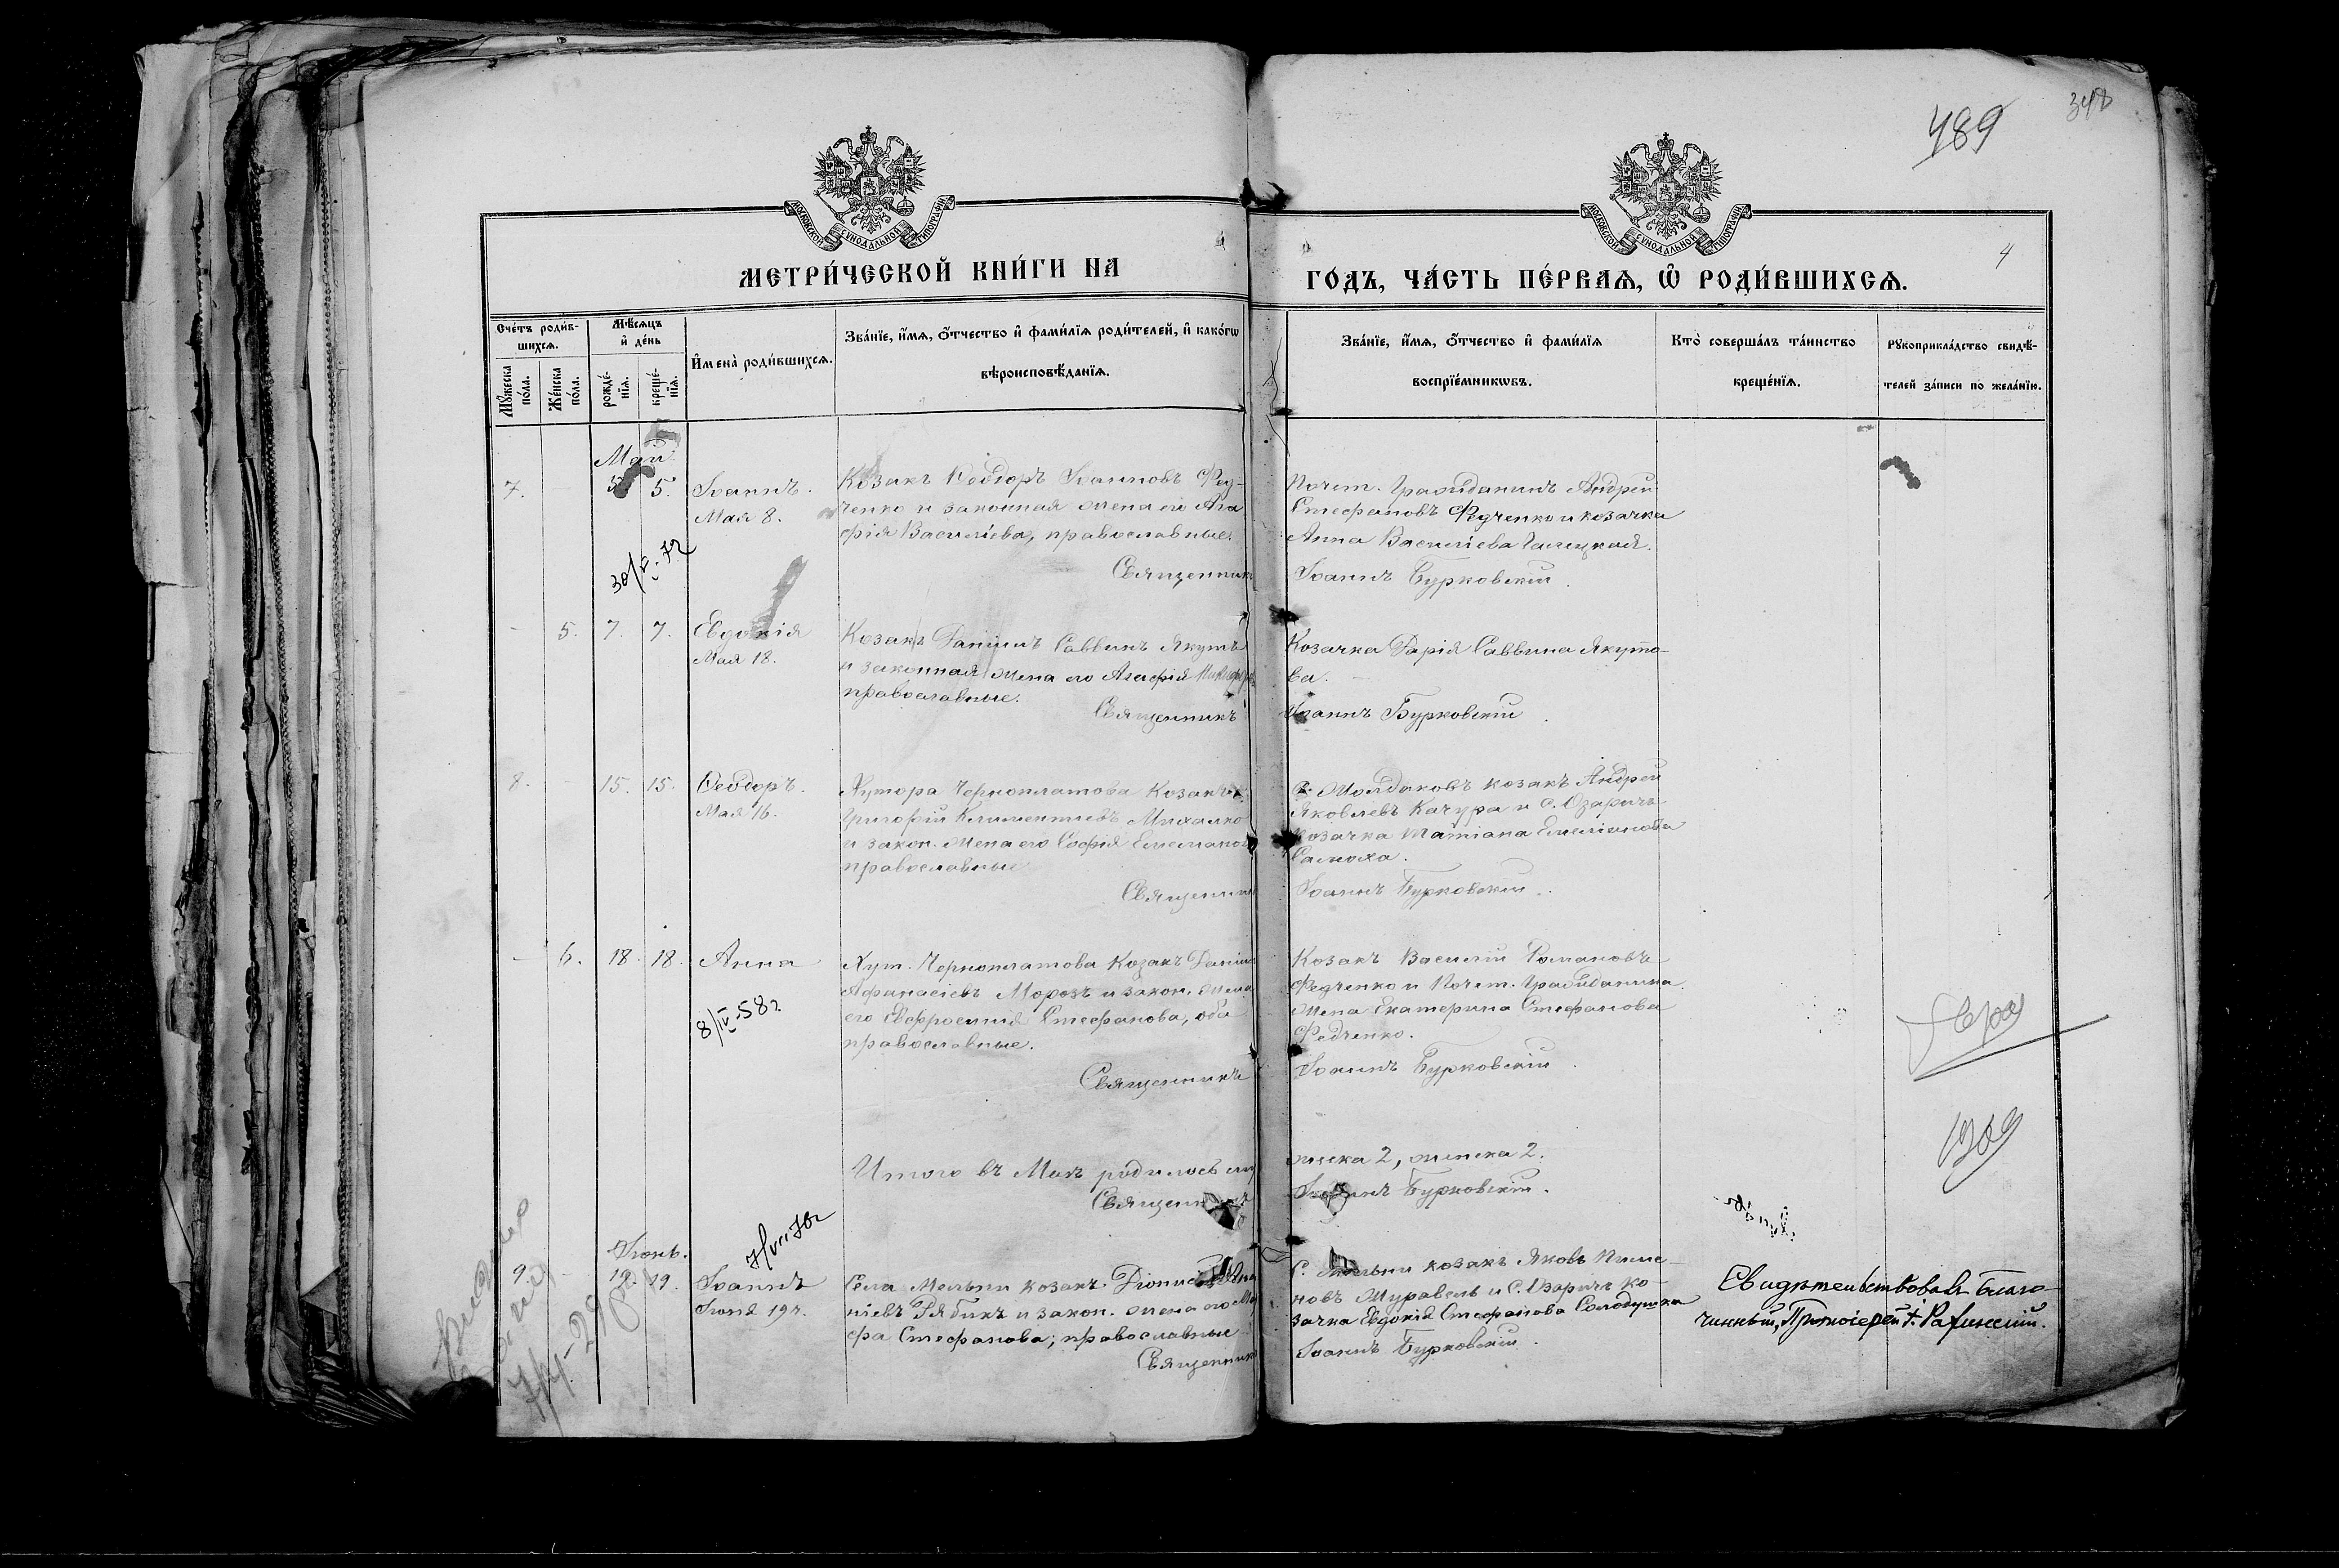 489
348
4
МОСКОВСКОЙ СУНОДАЛЬНОЙ ТИПОГРАФІИ
МОСКОВСКОЙ СУНОДАЛЬНОЙ ТИПОГРАФІИ
МЕТРИ́ЧЕСКОЙ КНИ́ГИ НА
ГОДЪ, ЧА́СТЬ ПЕ́РВАѦ, Ѽ РОДИ́ВШИХСѦ.
Сче́тъ роди́в-
шихсѧ.
Мꙋжеска
по́ла.
Же́нска
по́ла.
Мѣ́сѧцъ
и҆ де́нь
рожде́-
нїѧ.
креще́-
нїѧ.
И҆мена̀ роди́вшихсѧ.
Зва́нїе, и҆́мѧ, ѻ҆́тчество и҆ фами́лїѧ роди́телей, и҆ како́гѡ
вѣроисповѣ́данїѧ.
Зва́нїе, и҆́мѧ, ѻ҆́тчество и҆ фами́лїѧ
воспрїе́мникѡвъ.
Кто̀ соверша́лъ та́инство
креще́нїѧ.
Рꙋкоприкла́дство свидѣ́-
телей за́писи по жела́нїю.
Май
7. 5. Іоаннъ.
Мая 8.
Козакъ Ѳеодоръ Іоанновъ Фед-
ченко и законная жена его Ага
фія Васильева, православные.
Священникъ
Почет. Гражданинъ Андрей
Стефановъ Федченко и козачка
Анна Васильева Галицкая.
Іоаннъ Бурковскій.
30/V-72
5. 7. 7. Евдокія
Мая 18.
Козакъ Даніилъ Саввинъ Якутъ
и законная жена его Агафія
православные.
Священникъ
Козачка Дарія Саввина Якуто-
ва.
Іоаннъ Бурковскій.
8. 15. 15. Ѳеодоръ.
Мая 16.
Хутора Черноплатова Козакъ
Григорій Климентіевъ Михалко
и закон. жена его Софія Емелианов
православные
Священникъ
С. Молдаковъ козакъ Андрей
Яковлевъ Качура и С. Озаричъ
козачка Татіана Емеліанова
Самоха.
Іоаннъ Бурковскій.
6. 18. 18. Анна
8/IV-58 г.
Хут. Черноплатова Козакъ Даніил
Афанасіевъ Морозъ и закон. жена
его Евфросинія Стефанова, оба
православные.
Священникъ
Козакъ Василій Романовъ
Федченко и Почет. Гражданина
жена Екатерина Стефанова
Федченко.
Іоаннъ Бурковскій.
Итого въ Маѣ родилось муж
Священникъ
жеска 2, женска 2.
Іоаннъ Бурковскій.
1909
Іюнь.
9. 19. 19. Іоаннъ
Іюня 19 ч.
Села Мельни козакъ Діонисій
ніевъ Рябикъ и закон. жена его Ма
фа Стефанова; православные
Священникъ
С. Мельни козакъ Яковъ Пиме-
новъ Муравель и С. Озаричъ ко-
зачка Евдокія Стефанова Солодушка
Іоаннъ Бурковскій.
Свидѣтельствовалъ Благо-
чинный, Протоіерей